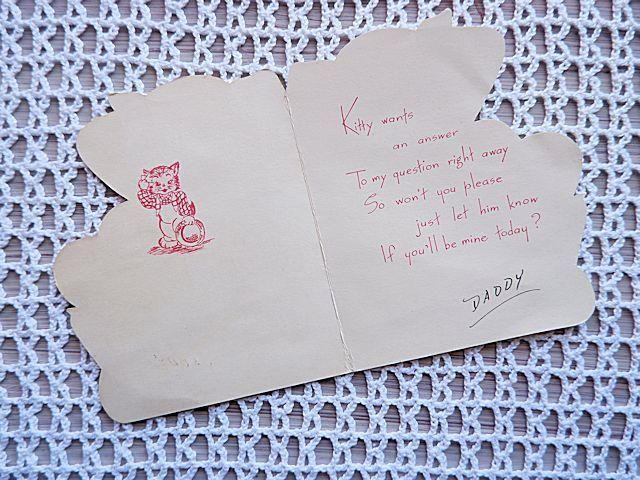 Kitty wants
an answer
To my question right away
So won't you please
just let him know
If you'll be mine today?
DADDY